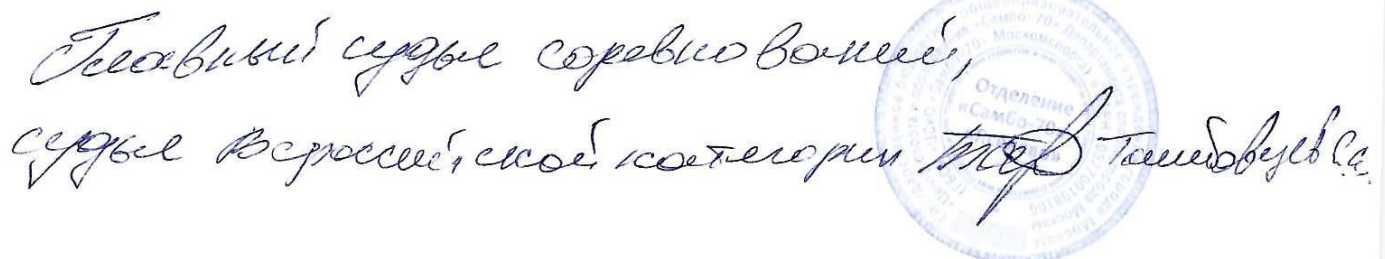 Главный судья соревнований,
судья всероссийской категории Тамбовцев С.С.
Отделение
«Самбо-70»